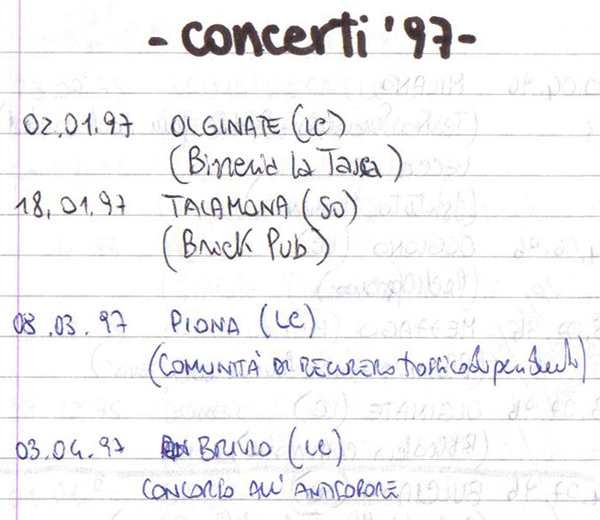 - concerti '97 -
02.01.97 OLGINATE (LC)
(Birreria la Tasca)
18.01.97 TALAMONA (SO)
(Brick Pub)
08.03.97 PIONA (LC)
(COMUNITA' DI RECUPERO tossicodipendenti)
03.04.97 BRIVIO (LC)
CONCORSO ALL' ANTIFODORE